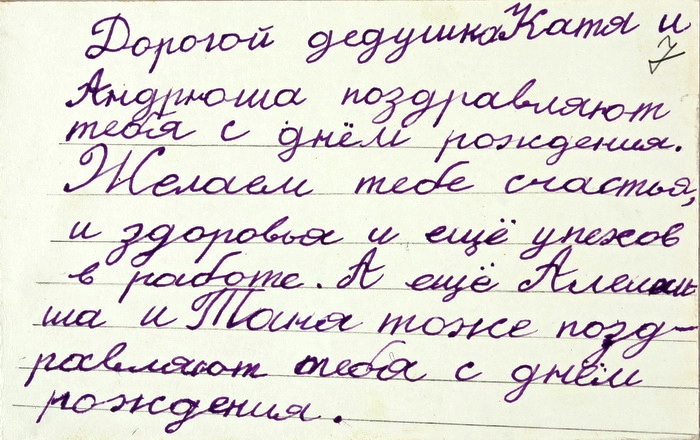 Дорогой дедушка Катя и
7
Андрюша поздравляют
тебя с днём рождения.
Желаем тебе счастья,
и здоровья и ещё упехов
в работе. А ещё Алеши
ша и Таня тоже позд-
равляют тебя с днём
рождения.